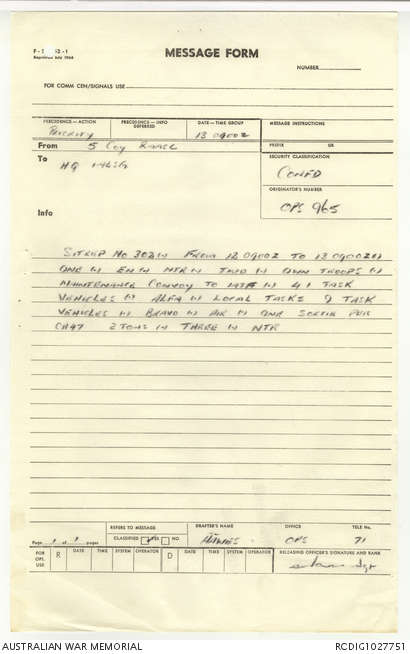 MESSAGE FORM
NUMBER
FOR COMM CEN/SIGNALS USE
PRECEDENCE—ACTION
PRIORITY
PRECEDENCE—INFO DEFERRED
DATE—TIME GROUP
13 0900Z
MESSAGE INSTRUCTIONS
PREFIX GR
From 5 Coy RAASC
To HQ 1 ALSG
SECURITY CLASSIFICATION
CONFD
ORIGINATOR'S NUMBER
OPS 965
Info
SITREP No FROM 12 0900Z TO 13 0900Z
ONE EN NTR TWO OWN TROOPS
MAINTENANCE CONVOY TO 41 TASK
VEHICLES ALFA LOCAL TASKS 9 TASK
VEHICLES BRAVO AIR ONE SORTIE PER
CH47 2 TONS THREE NTR
Page 1 of 1 pages
REFERS TO MESSAGE
CLASSIFIED YES NO
DRAFTER'S NAME
OFFICE
OPS
TELE No.
71
FOR OPS. USE
R DATE TIME SYSTEM OPERATOR D DATE TIME SYSTEM OPERATOR
RELEASING OFFICER'S SIGNATURE AND RANK
Sgt
AUSTRALIAN WAR MEMORIAL
RCDIG1027751